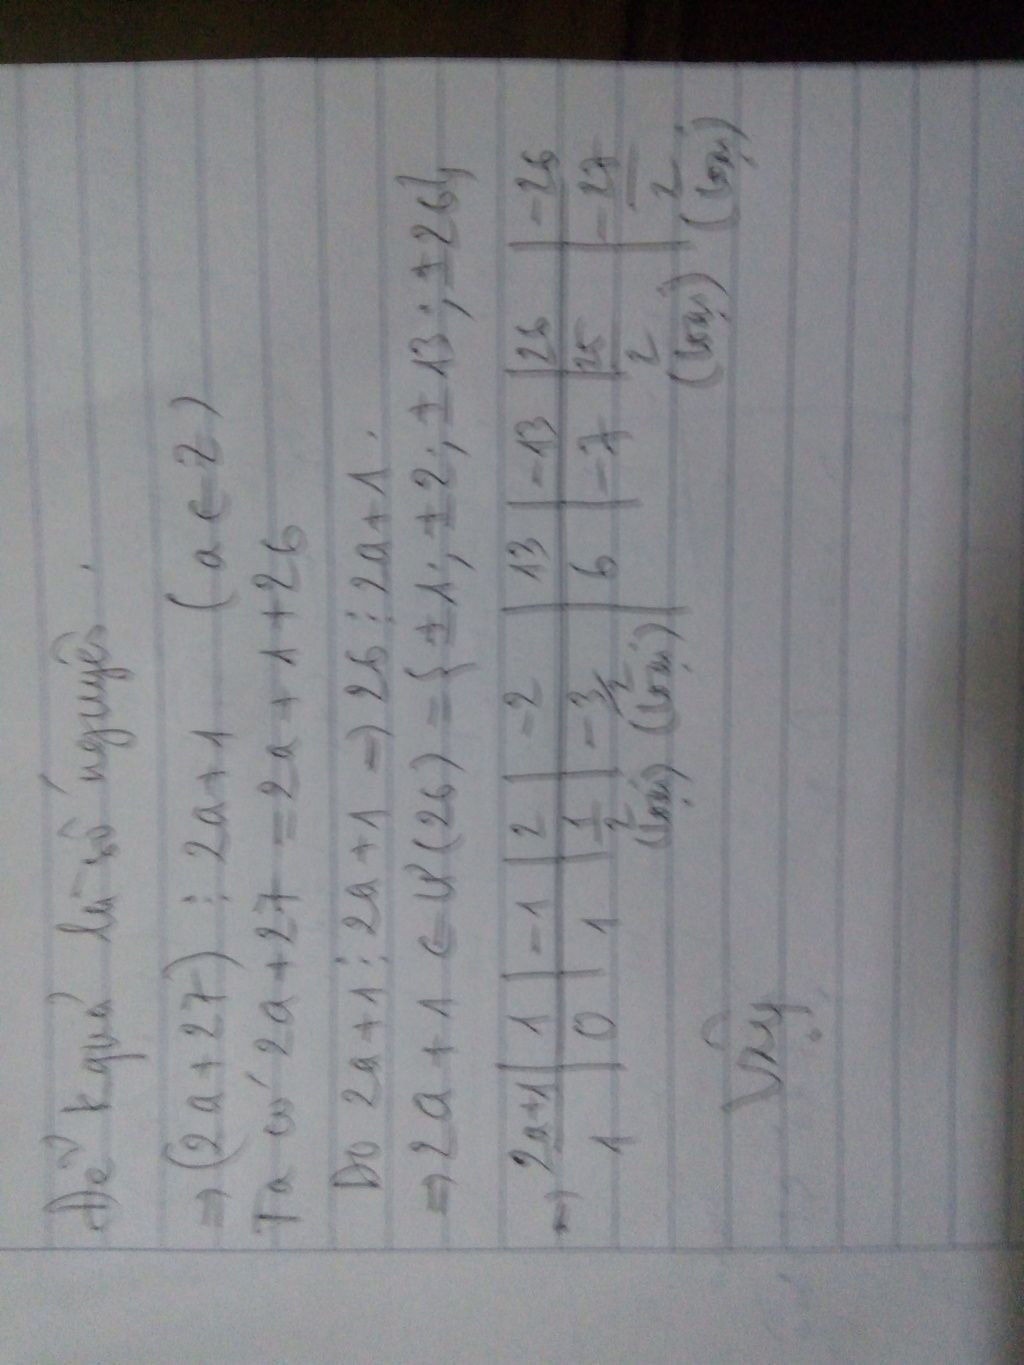 Để kquả là số nguyên.
=> (2a+27) ⋮ 2a+1 (a ∈ Z)
Ta có 2a+27 = 2a+1+26
Do 2a+1 ⋮ 2a+1 => 26 ⋮ 2a+1.
=> 2a+1 ∈ Ư(26) = {±1; ±2; ±13; ±26}
=> 2a+1 | 1 | -1 | 2 | -2 | 13 | -13 | 26 | -26
1 | 0 | 1 | 1/2 (loại) | -3/2 (loại) | 6 | -7 | 25/2 (loại) | -27/2 (loại)
Vậy